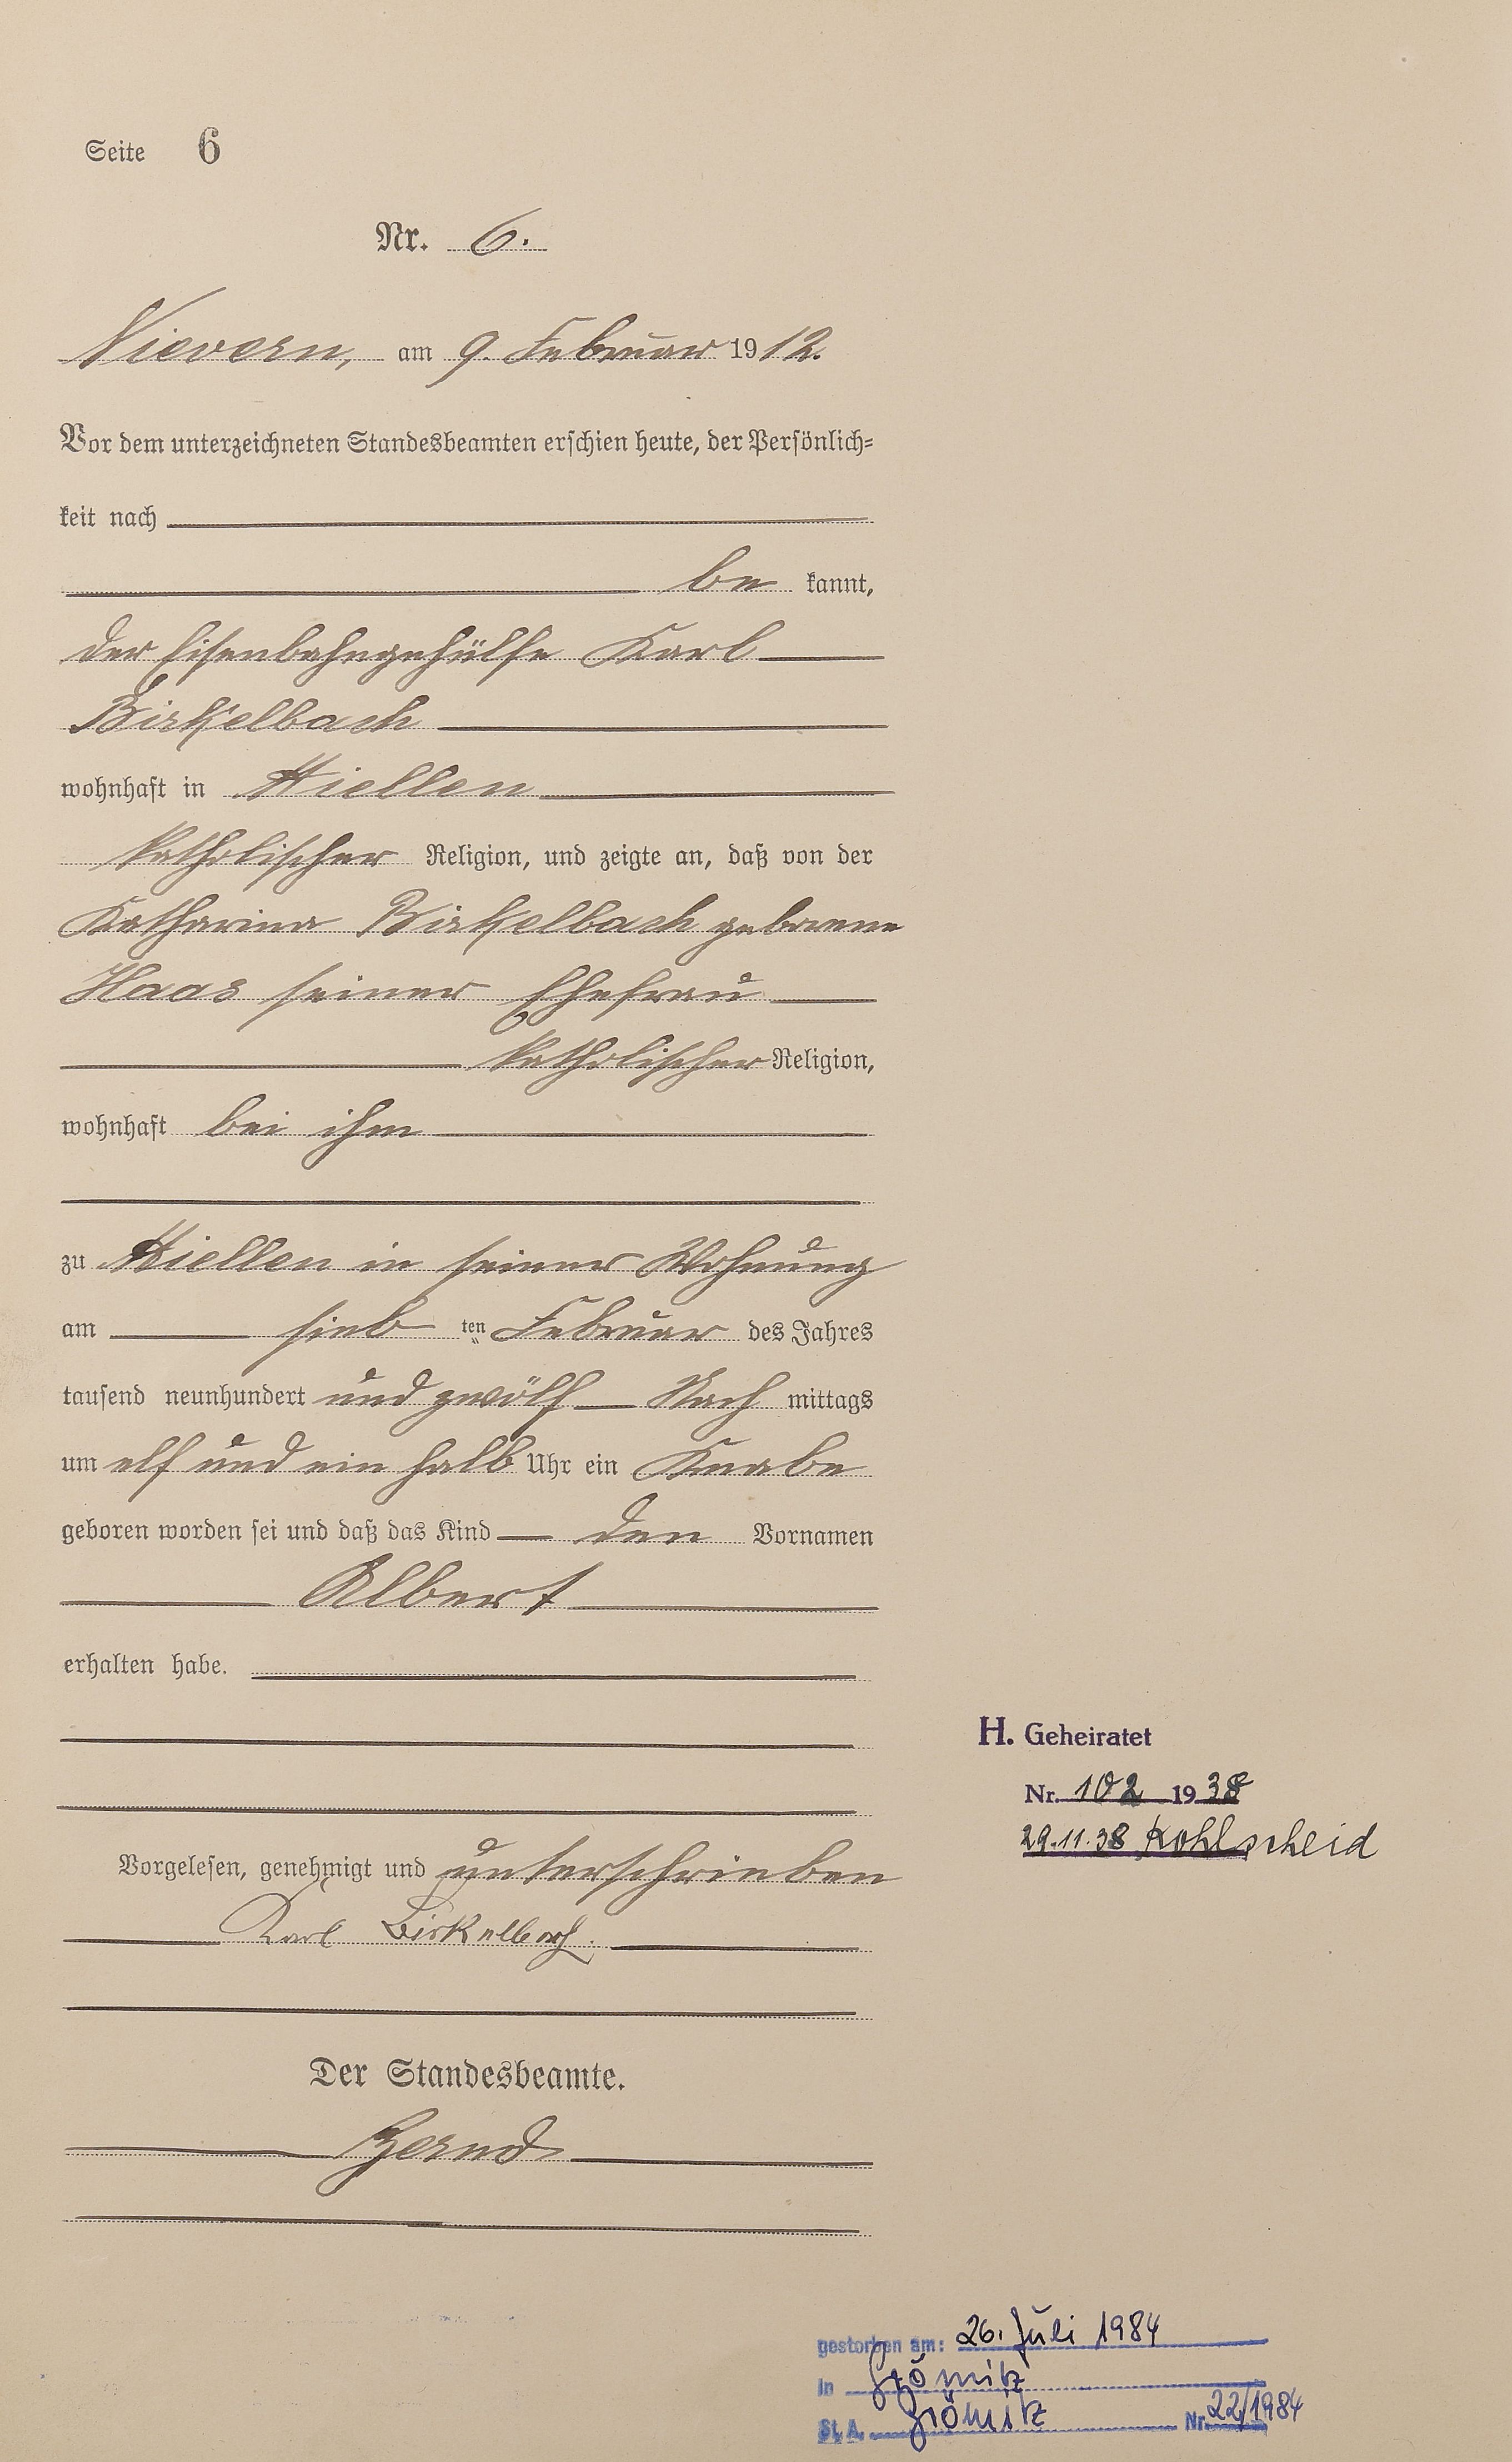 Seite 6
Nr. 6.
Nievern, am 9. Februar 1912.
Vor dem unterzeichneten Standesbeamten erschien heute, der Persönlich=
keit nach
be kannt,
der Eisenbahngehülfe Karl
Birkelbach
wohnhaft in Miellen
katholischer Religion, und zeigte an, daß von der
Katharina Birkelbach geborene
Haas seiner Ehefrau
katholischer Religion,
wohnhaft bei ihm
zu Miellen in seiner Wohnung
am sieb ten Februar des Jahres
tausend neunhundert und zwölf Nach mittags
um elf und ein halb Uhr ein Knabe
geboren worden sei und daß das Kind den Vornamen
Albert
erhalten habe.
H. Geheiratet
Nr. 102 1938
29.11.38 Kohlscheid
Vorgelesen, genehmigt und unterschrieben
Karl Birkelbach.
Der Standesbeamte.
gestorben am: 26. Juli 1984
in Grömitz
St. A. Grömitz Nr. 22/1984